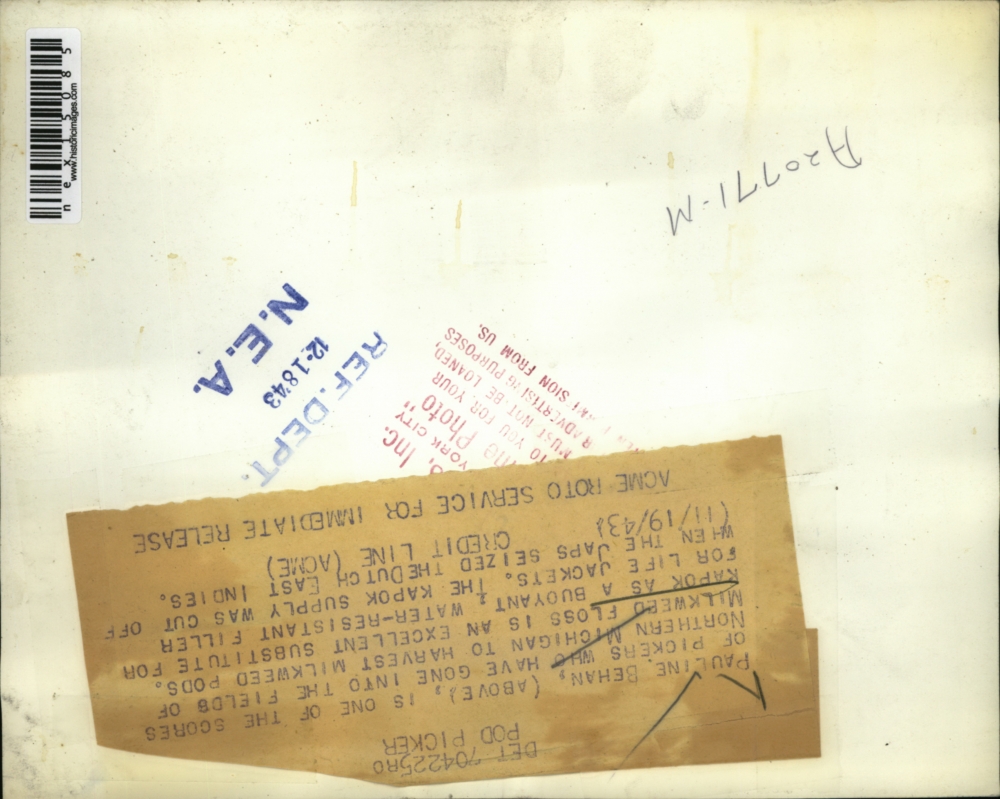 nex15085
www.historicimages.com
A20771-M
N.E.A.
12-18 43
REF. DEPT.
, Inc.
YORK CITY
me Photo"
TO YOU FOR YOUR
MUST NOT BE LOANED,
R ADVERTISING PURPOSES
SION FROM US.
DET 704225RO
POD PICKER
PAULINE BEHAN, (ABOVE), IS ONE OF THE SCORES
OF PICKERS WHO HAVE GONE INTO THE FIELDS OF
NORTHERN MICHIGAN TO HARVEST MILKWEED PODS.
MILKWEED FLOSS IS AN EXCELLENT SUBSTITUTE FOR
KAPOK AS A BUOYANT, WATER-RESISTANT FILLER
FOR LIFE JACKETS. THE KAPOK SUPPLY WAS CUT OFF
WHEN THE JAPS SEIZED THE DUTCH EAST INDIES.
(11/19/43) CREDIT LINE (ACME)
ACME ROTO SERVICE FOR IMMEDIATE RELEASE